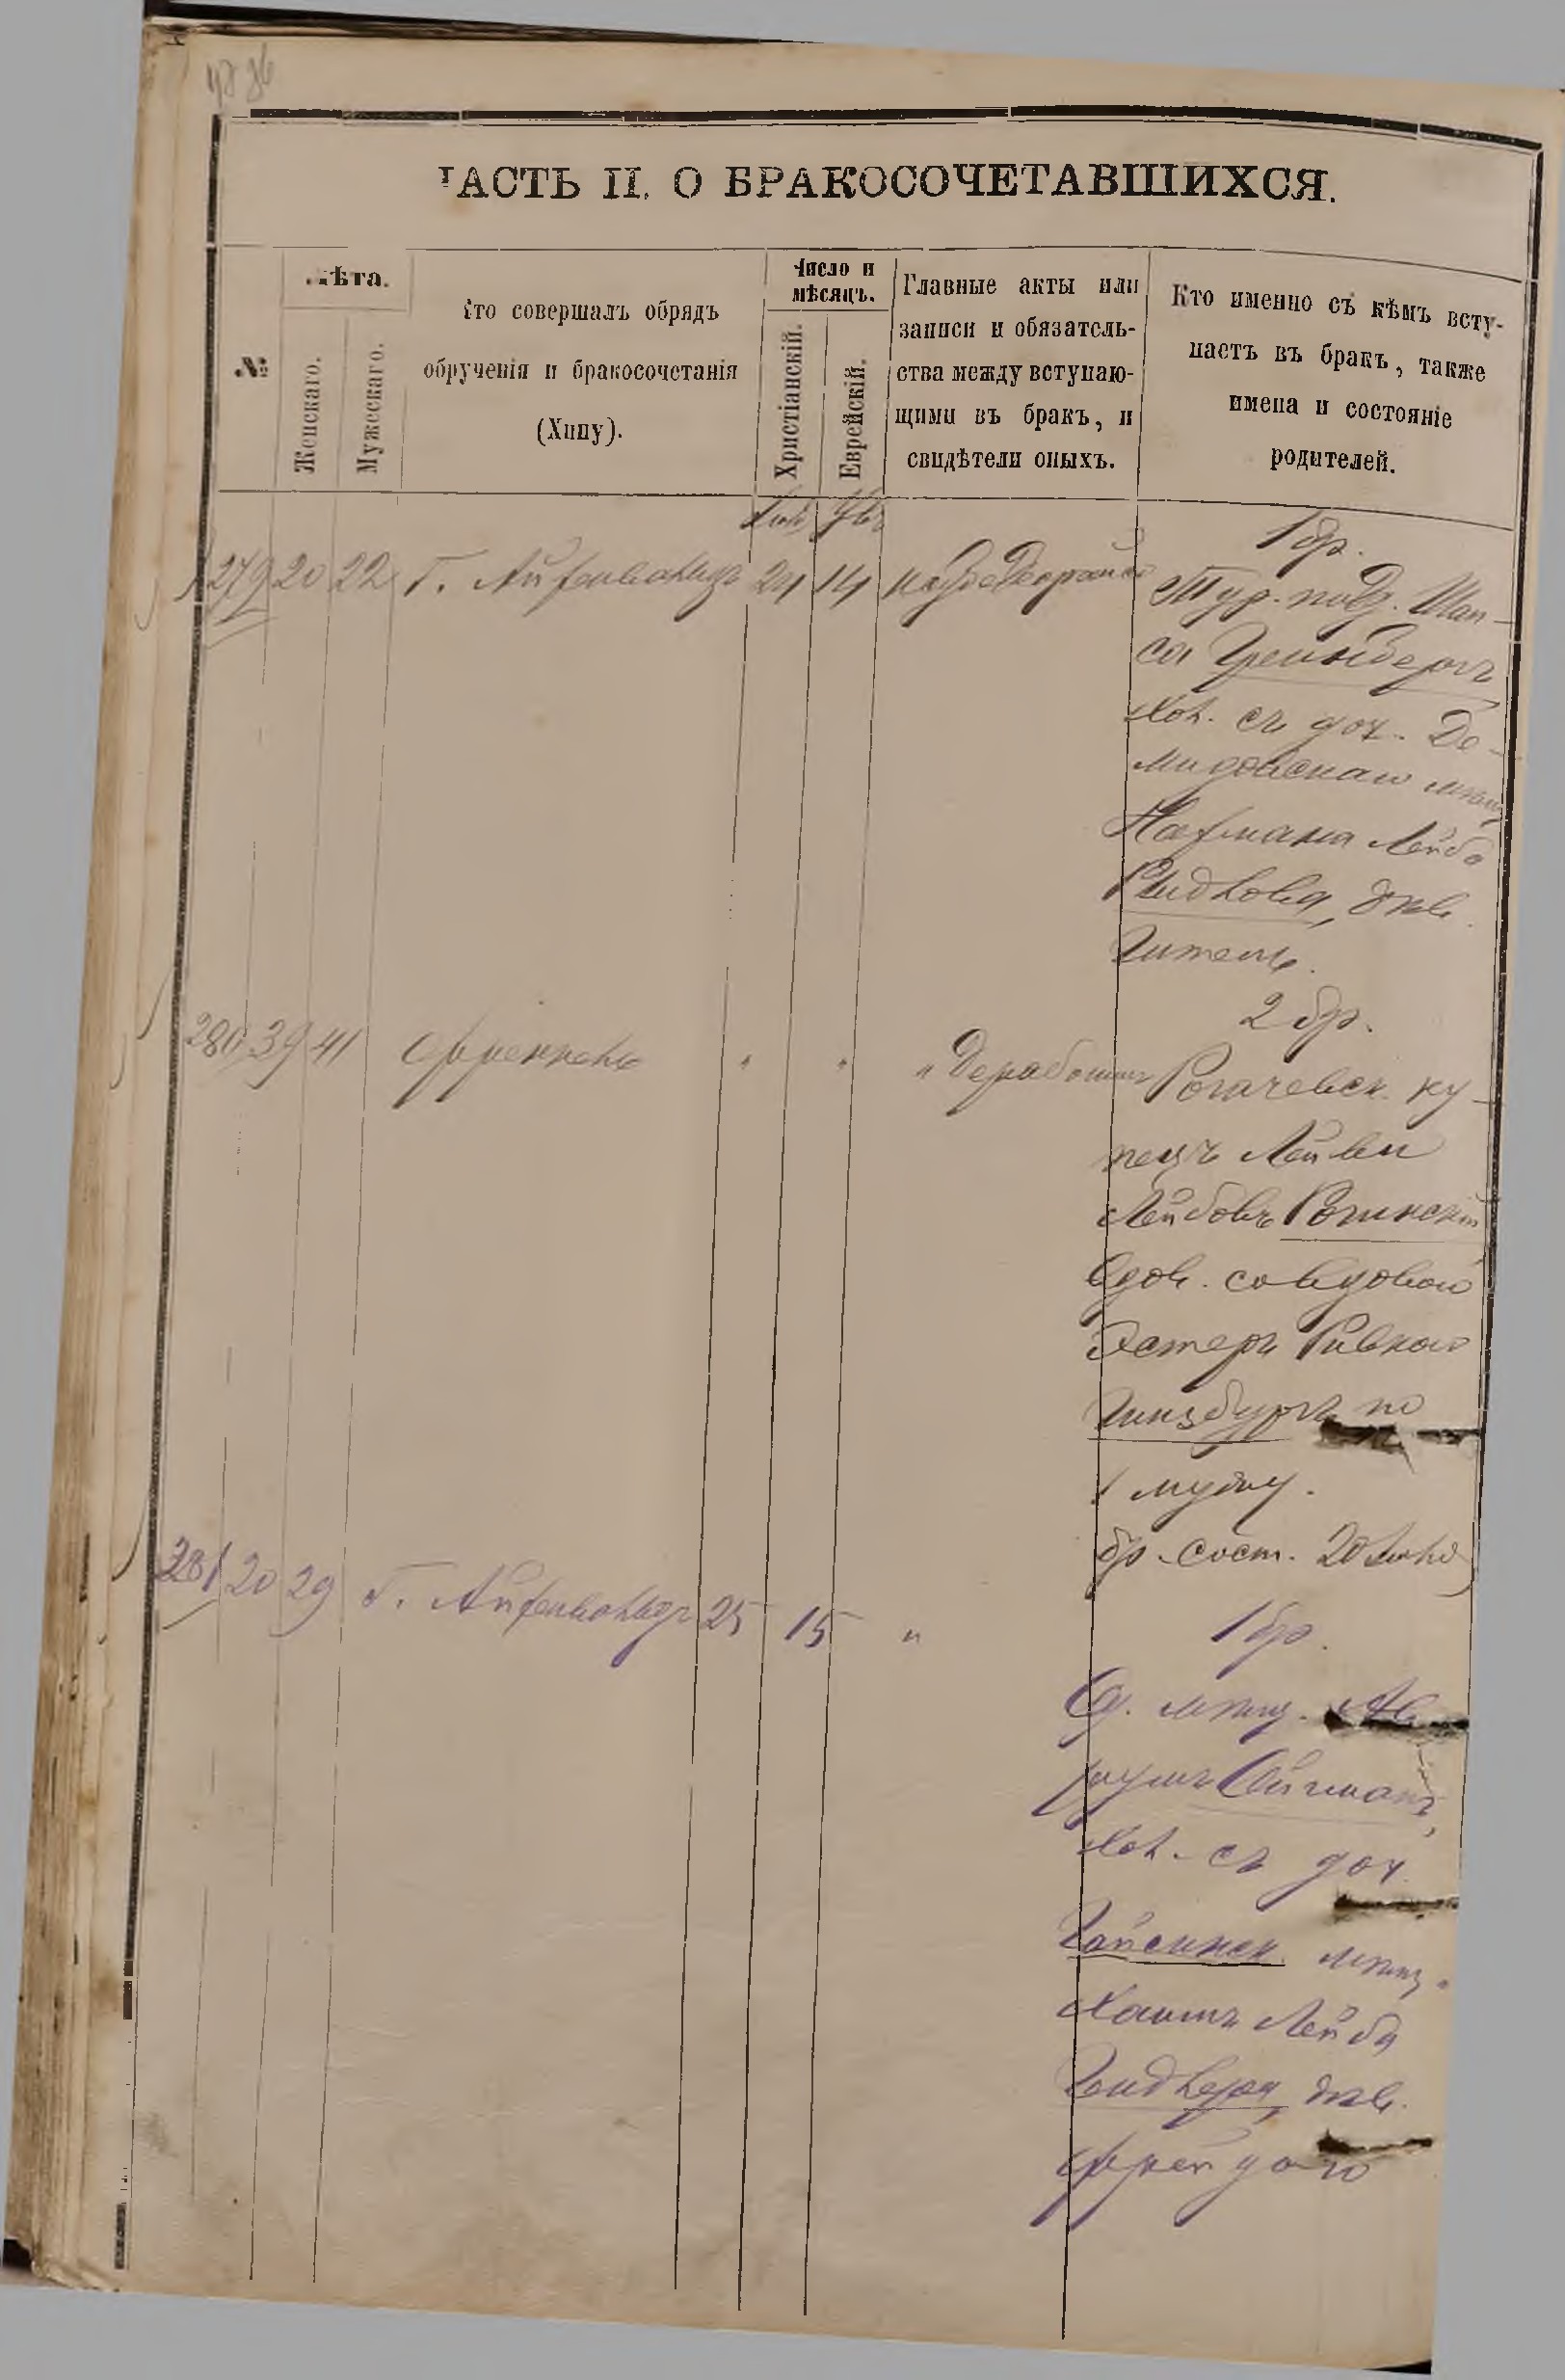 ЧАСТЬ II. О БРАКОСОЧЕТАВШИХСЯ.
№
Лѣта.
Женскаго.
Мужескаго.
Кто совершалъ обрядъ
обрученія и бракосочетанія
(Хипу).
Число и
мѣсяцъ.
Христіанскій.
Еврейскій.
Главные акты или
записи и обязатель-
ства между вступаю-
щими въ бракъ, и
свидѣтели оныхъ.
Кто именно съ кѣмъ всту-
паетъ въ бракъ, также
имена и состояніе
родителей.
279 20 22 Г. 24 14
1 бр.
Тур. подд. Шап-
са Гринбергъ
хол. съ доч. Де-
мидовскаго мѣщ
Нахмана Лейба
дѣв.
Гитель.
280 39 41 " " "
2 бр.
Рогачевск. ку-
пецъ Лейви
Лейбовъ Рогинскій
вдов. со вдовой
Эстеръ Ривкою
Гинзбургъ по
1 мужу.
бр. сост. 20
281 20 29 Г. 25 15 "
1 бр.
Од. мѣщ. Ав
румъ
хол. съ доч.
Гайсинск. мѣщ.
Хаимъ Лейба
дѣв.
Фрейдою